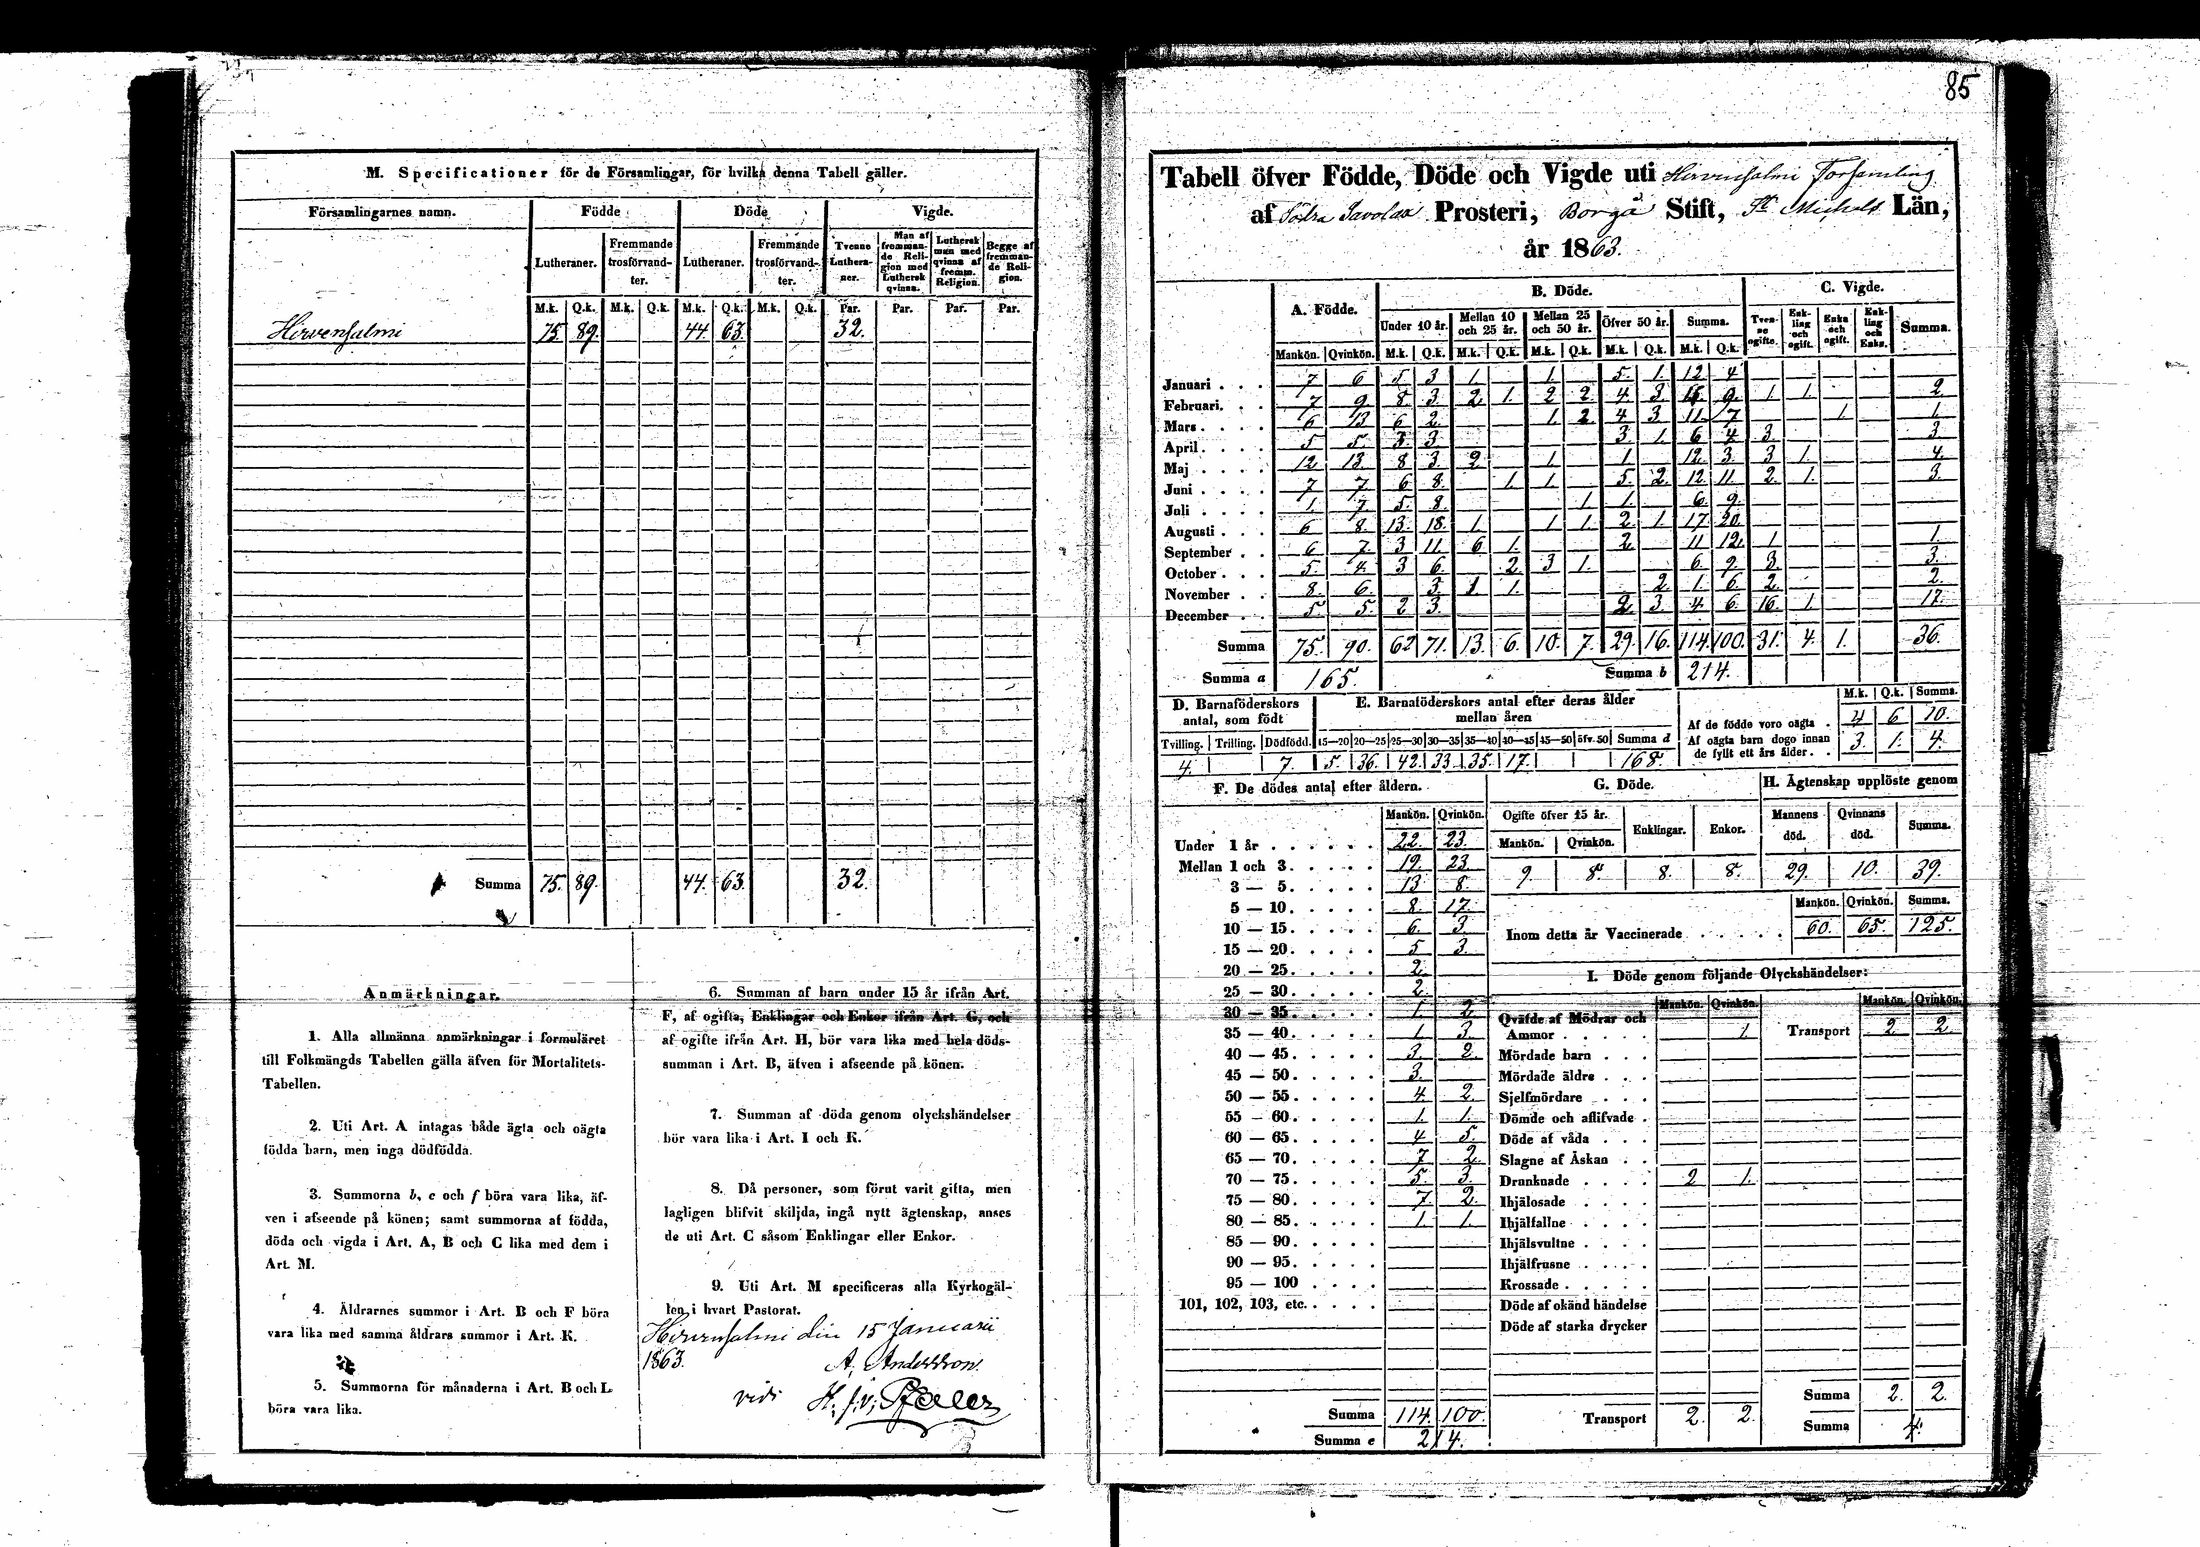 M. Specificationer för de Församlingar, för hvilka denna Tabell gäller.
Församlingarnes namn. Födde Döde Vigde.
Lutheraner. Fremmande trosförvandter. Lutheraner. Fremmande trosförvandter. Tvenne Lutheraner. Man af fremmande Religion med Luthersk qvinna. Luthersk man med qvinna af fremm. Religion. Begge af fremmande Religion.
M.k. Q.k. M.k. Q.k. M.k. Q.k. M.k. Q.k. Par. Par. Par. Par.
Hirvensalmi 75. 89. 44. 63. 32.
Summa 75. 89. 44. 63. 32.
Anmärkningar.
1. Alla allmänna anmärkningar i formuläret
till Folkmängds Tabellen gälla äfven för Mortalitets-
Tabellen.
2. Uti Art. A intagas både ägta och oägta
födda barn, men inga dödfödda.
3. Summorna b, e och f böra vara lika, äf-
ven i afseende på könen; samt summorna af födda,
döda och vigda i Art. A, B och C lika med dem i
Art. M.
4. Åldrarnes summor i Art. B och F böra
vara lika med samma åldrars summor i Art. K.
5. Summorna för månaderna i Art. B och L
böra vara lika.
6. Summan af barn under 15 år ifrån Art.
F, af ogifta, Enklingar och Enkor ifrån Art. G, och
af ogifte ifrån Art. H, bör vara lika med hela döds-
summan i Art. B, äfven i afseende på könen.
7. Summan af döda genom olyckshändelser
bör vara lika i Art. I och K.
8. Då personer, som förut varit gifta, men
lagligen blifvit skiljda, ingå nytt ägtenskap, anses
de uti Art. C såsom Enklingar eller Enkor.
9. Uti Art. M specificeras alla Kyrkogäl-
len i hvart Pastorat.
Hirvensalmi din 15 Januarii
1863. A. Andersson.
vidi
85
Tabell öfver Födde, Döde och Vigde uti Hirvensalmi Församling
af Södra Savolax Prosteri, Borgå Stift, St Michels Län,
år 1863.
A. Födde. B. Döde. C. Vigde.
Under 10 år. Mellan 10 och 25 år. Mellan 25 och 50 år. Öfver 50 år. Summa. Tvenne ogifte. Enkling och ogift. Enka och ogift. Enkling och Enka. Summa.
Mankön. Qvinkön. M.k. Q.k. M.k. Q.k. M.k. Q.k. M.k. Q.k. M.k. Q.k.
Januari . . . 7 6 5 3 1. 1. 5. 1. 12 4
Februari. . . 7 9 8 3. 2 1. 2 2 4 3 16 9. 1 1. 2
Mars . . . . 6 13 6 2. 1. 2 4 3 11. 7 1. 1.
April . . . . 5 5. 3 3. 3 1. 6 4 3. 3.
Maj . . . . 12 13. 8 3. 2 1. 1. 12. 3. 3 1. 4.
Juni . . . . 7 7. 6 8. 1. 1. 5. 2. 12. 11. 2. 1. 3.
Juli . . . . 1. 7 5. 8. 1. 1. 6. 9.
Augusti . . . 6 8. 13. 18. 1. 1 1. 2. 1. 17. 20.
September . . 6 7. 3 11. 6 1. 2. 11 12. 1 1.
October . . . 5. 4. 3 6. 2. 3 1. 6. 9. 3. 3.
November . . 8. 6. 3. 1 1. 2. 1. 6. 2. 2.
December . . 5 5. 2 3. 2. 3. 4 6. 16. 1. 17.
Summa 75. 90. 62 71. 13. 6. 10. 7. 29. 16. 114. 100. 31. 4. 1. 36.
Summa a 165. Summa b 214.
D. Barnaföderskors antal, som födt E. Barnaföderskors antal efter deras ålder mellan åren M.k. Q.k. Summa.
Tvilling. Trilling. Dödfödd. 15—20 20—25 25—30 30—35 35—40 40—45 45—50 öfv. 50 Summa d
4. 7. 5. 36. 42. 33. 35. 17. 168.
Af de födde voro oägta . 4 6 10.
Af oägta barn dogo innan de fyllt ett års ålder . . 3. 1. 4.
F. De dödes antal efter åldern. G. Döde. H. Ägtenskap upplöste genom
Mankön. Qvinkön. Ogifte öfver 15 år. Mankön. Qvinkön. Enklingar. Enkor. Mannens död. Qvinnans död. Summa.
9. 8. 8. 8. 29. 10. 39.
Mankön. Qvinkön. Summa.
Inom detta år Vaccinerade . . . . . 60. 65. 125.
Under 1 år . . . . . . 22. 23.
Mellan 1 och 3 . . . . . 19. 23
3 — 5. . . . . 13 8.
5 — 10. . . . . 8. 17.
10 — 15. . . . . 6. 3
15 — 20. . . . . 5 3.
20 — 25. . . . . 2.
25 — 30. . . . . 2.
30 — 35. . . . . 1. 2.
35 — 40. . . . . 1. 3.
40 — 45. . . . . 3. 2.
45 — 50. . . . . 3.
50 — 55. . . . . 4. 2.
55 — 60. . . . . 1. 1.
60 — 65. . . . . 4 5.
65 — 70. . . . . 7 2.
70 — 75. . . . . 5. 3.
75 — 80. . . . . 7. 2.
80 — 85. . . . . 1. 1.
85 — 90. . . . .
90 — 95. . . . .
95 — 100 . . . .
101, 102, 103, etc. . . . .
Summa 114. 100.
Summa e 214.
I. Döde genom följande Olyckshändelser:
Mankön. Qvinkön. Mankön. Qvinkön.
Qväfde af Mödrar och Ammor . . . . . 1. Transport 2 2
Mördade barn . . .
Mördade äldre . . .
Sjelfmördare . . .
Dömde och aflifvade .
Döde af våda . . .
Slagne af Åskan . .
Drunknade . . . . 2 1.
Ihjälosade . . . .
Ihjälfallne . . . .
Ihjälsvultne . . . .
Ihjälfrusne . . . .
Krossade . . . . .
Döde af okänd händelse
Döde af starka drycker
Summa 2. 2.
Transport 2. 2. Summa 4.